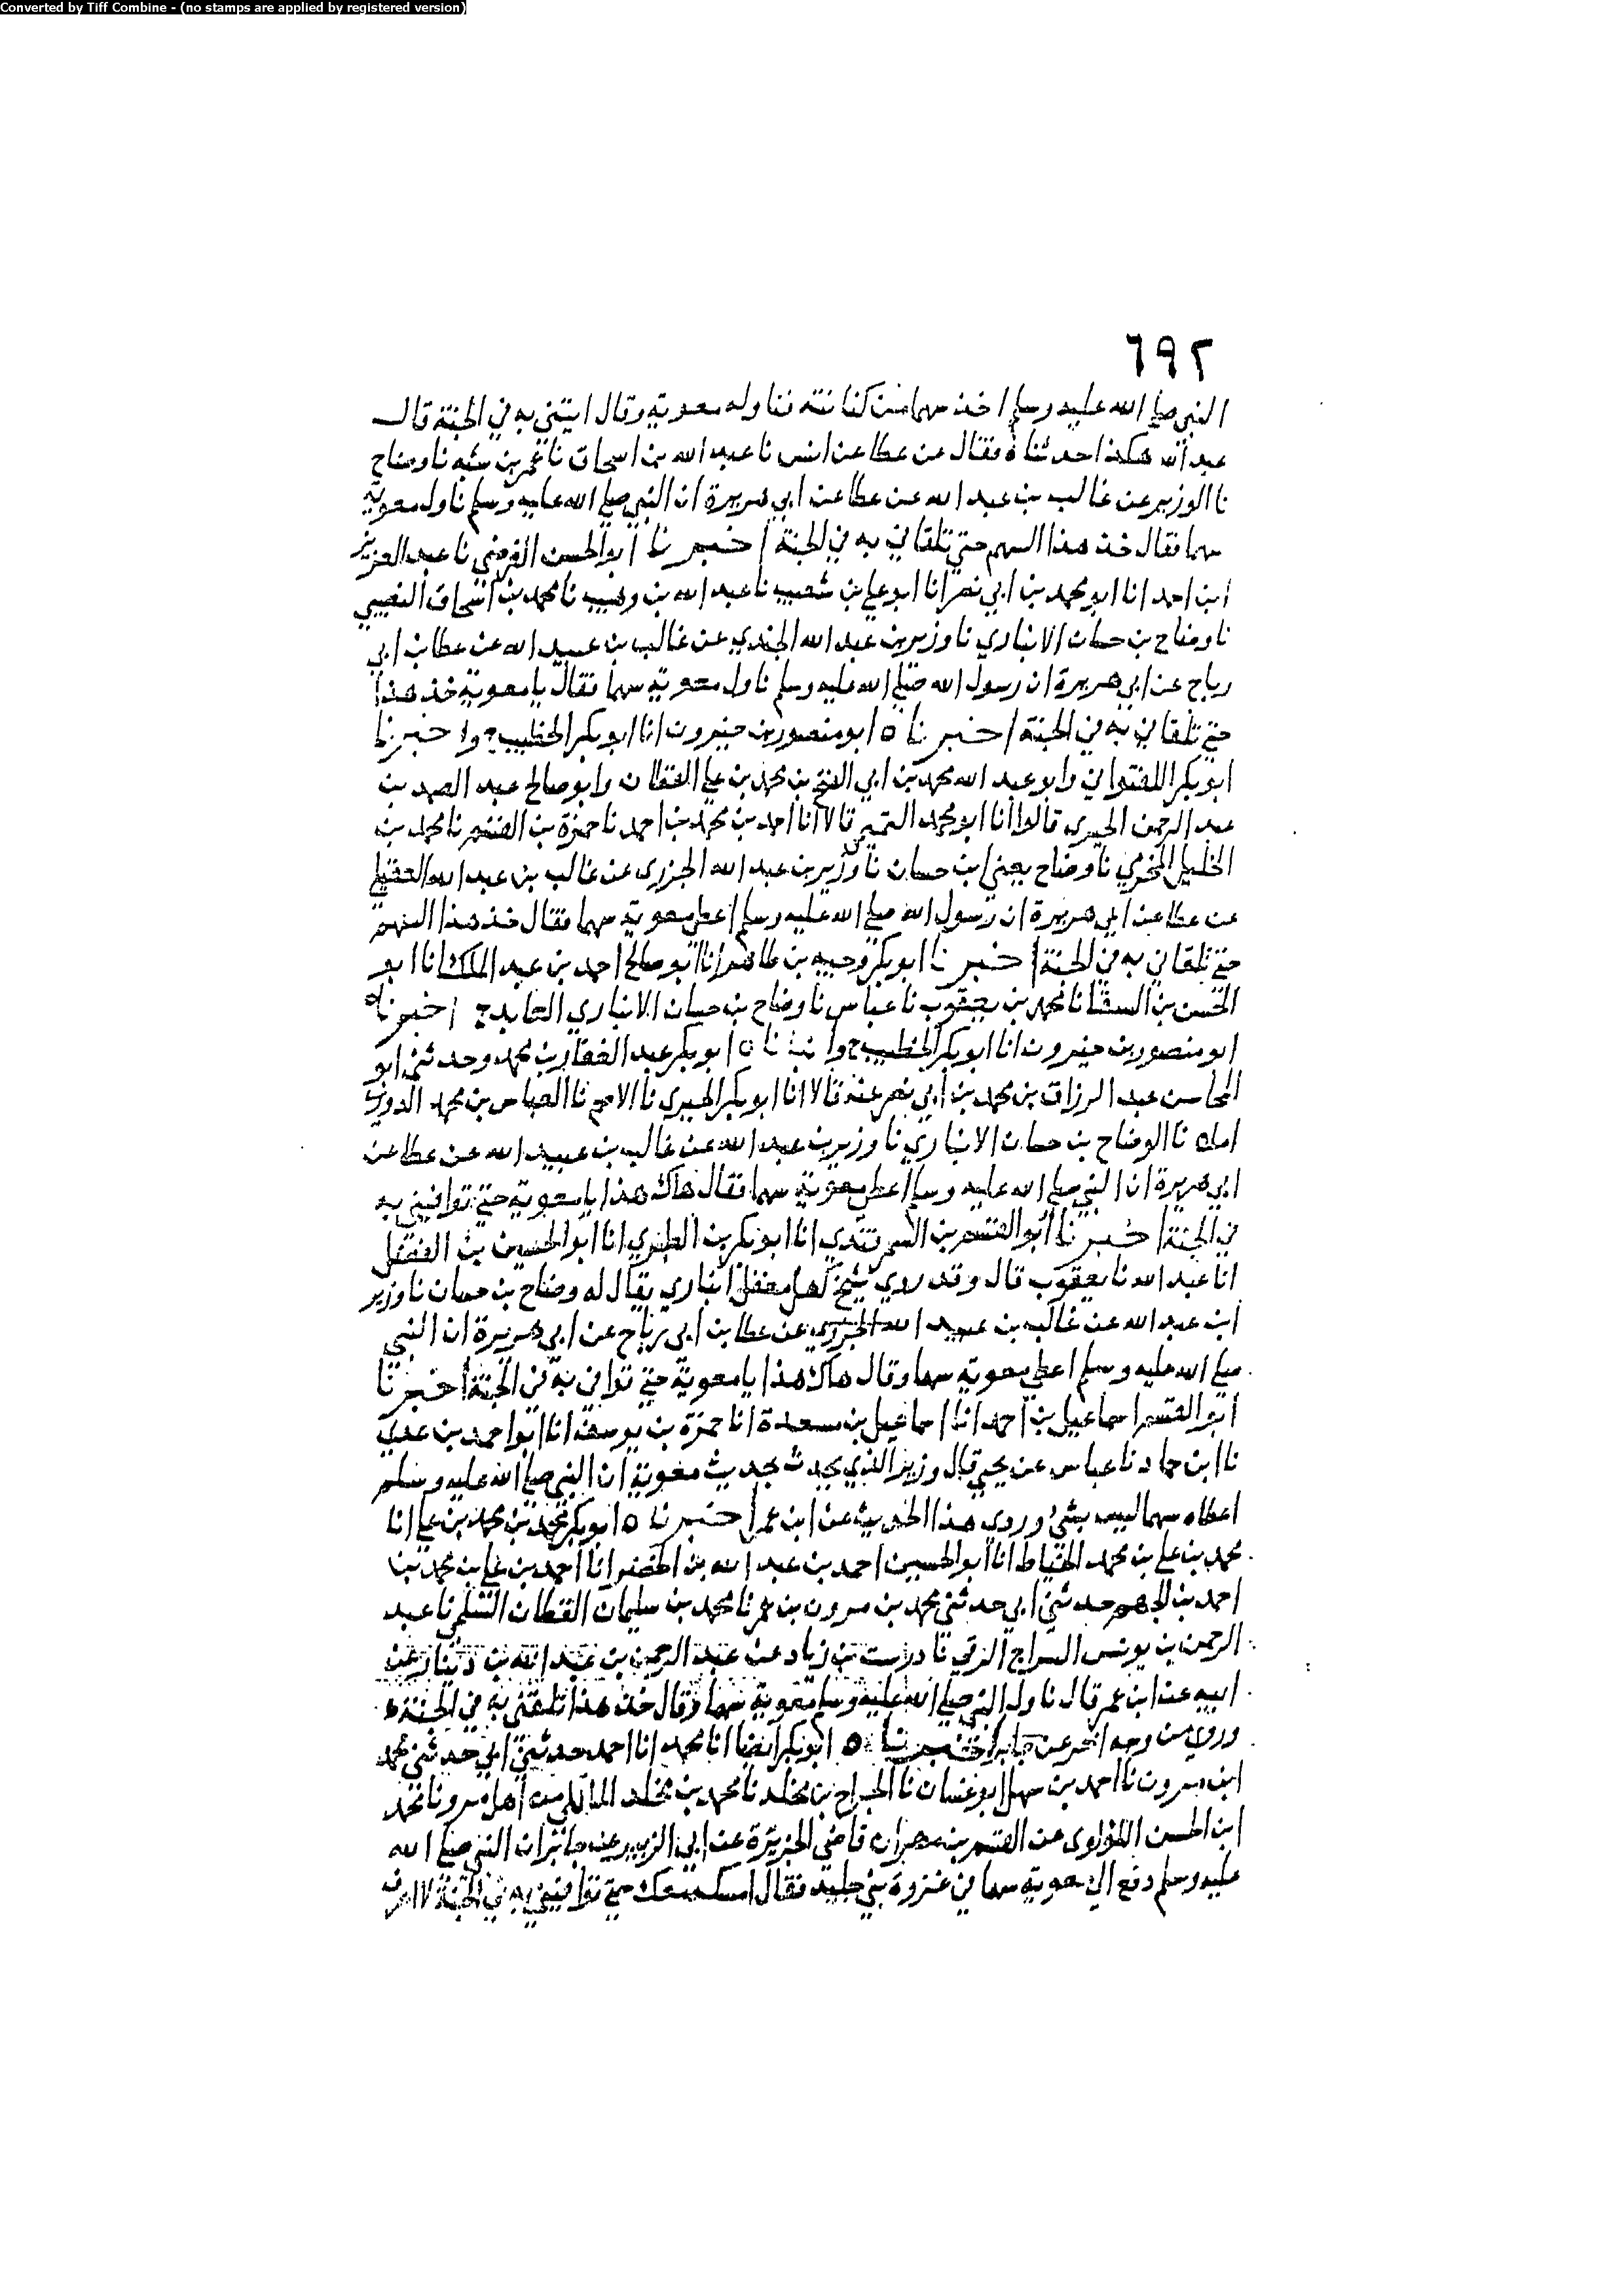 Converted by Tiff Combine - (no stamps are applied by registered version)
٦٩٢
النبي صلي الله عليه وسلم اخذ سهما من كنانته فناوله معوية وقال ايتني به في الجنة قال
عبد الله هكذا حدثناه فقال عن عطا عن انس نا عبد الله بن اسحاق نا عمر بن شبه نا وضاح
نا الوزير عن غالب بن عبد الله عن عطا عن ابي هريرة ان النبي صلي الله عليه وسلم ناول معوية
سهما فقال خذ هذا السهم حتي تلقاني به في الجنة اخبرنا ابو الحسن الفرضي نا عبد العزيز
ابن احمد انا ابو محمد بن ابي نصر انا ابو علي بن شعيب نا عبد الله بن وهيب نا محمد بن اسحاق النصيبي
نا وضاح بن حسان الانباري نا وزير بن عبد الله الجندي عن غالب بن عبيد الله عن عطا بن ابي
رباح عن ابي هريرة ان رسول الله صلي الله عليه وسلم ناول معوية سهما فقال يا معوية خذ هذا
حتي تلقاني به في الجنة اخبرنا ه ابو منصور بن خيرون انا ابو بكر الخطيب ح واخبرنا
ابو بكر اللفتواني وابو عبد الله محمد بن ابي الفتح بن محمد بن علي القطان وابو صالح عبد الصمد بن
عبد الرحمن الحيري قالوا انا ابو محمد التميمي قالا انا احمد بن محمد بن احمد نا حمزة بن القسم نا محمد بن
الخليل المخرمي نا وضاح يعني ابن حسان نا وزير بن عبد الله الجزري عن غالب بن عبد الله العقيلي
عن عطا عن ابي هريرة ان رسول الله صلي الله عليه وسلم اعطي معوية سهما فقال خذ هذا السهم
حتي تلقاني به في الجنة اخبرنا ابو بكر وجيه بن طاهر انا ابو صالح احمد بن عبد الملك انا ابو
الحسن بن السقا نا محمد بن يعقوب نا عباس نا وضاح بن حسان الانباري العابد ح اخبرناه
ابو منصور بن خيرون انا ابو بكر الخطيب ح وانبانا ه ابو بكر عبد الغفار بن محمد وحدثني ابو
المحاسن عبد الرزاق بن محمد بن ابي نصر عنه قالا انا ابو بكر الحيري نا الاصم نا العباس بن محمد الدوري
املاه نا الوضاح بن حسان الانباري نا وزير بن عبد الله عن غالب بن عبيد الله عن عطا عن
ابي هريرة ان النبي صلي الله عليه وسلم اعطي معوية سهما فقال هاك هذا يا معوية حتي توافيني به
في الجنة اخبرنا ابو القسم بن السمرقندي انا ابو بكر بن الطبري انا ابو الحسين بن الفضل
انا عبد الله نا يعقوب قال وقد روي شيخ مغفل انباري يقال له وضاح بن حسان نا وزير
ابن عبد الله عن غالب بن عبيد الله الجزري عن عطا بن ابي رباح عن ابي هريرة ان النبي
صلي الله عليه وسلم اعطي معوية سهما وقال هاك هذا يا معوية حتي توافي به في الجنة اخبرنا
ابو القسم اسماعيل بن احمد انا اسماعيل بن مسعدة انا حمزة بن يوسف انا ابو احمد بن عدي
نا ابن حماد نا عباس عن يحيي قال وزير الذي يحدث بحديث معوية ان النبي صلي الله عليه وسلم
اعطاه سهما ليس بشي وروي هذا الحديث عن ابن عمر اخبرنا ه ابو بكر محمد بن محمد بن علي انا
محمد بن علي بن محمد الخياط انا ابو الحسين احمد بن عبد الله بن الخضر انا احمد بن علي بن محمد بن
احمد بن الجهم حدثني ابي حدثني محمد بن مروان بن عمر نا محمد بن سليمان القطان السلمي نا عبد
الرحمن بن يونس السراج الرقي نا درست بن زياد عن عبد الرحمن بن عبد الله بن دينار عن
ابيه عن ابن عمر قال ناول النبي صلي الله عليه وسلم معوية سهما وقال خذ هذا تلقني به في الجنة ه
وروي من وجه اخر عن جابر اخبرنا ه ابو بكر ايضا انا محمد انا احمد حدثني ابي حدثني محمد
ابن مروان نا احمد بن سهل ابو غسان نا الجراح بن مخلد نا محمد بن مخلد المالكي من اهل مرو نا محمد
ابن الحسن اللؤلوي عن القسم بن مهران قاضي الجزيرة عن ابي الزبير عن جابر ان النبي صلي الله
عليه وسلم دفع الي معوية سهما في غزوة بني فقال امسك معك حتي توافيني به في الجنة